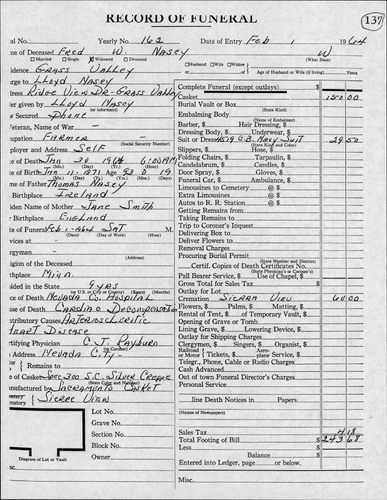 RECORD OF FUNERAL
137
al No. Yearly No. 162 Date of Entry Feb , 1964
e of Deceased Fred W. Nasey W
Married Single Widowed Divorced
(What Race)
Husband Wife Widow
or
Age of Husband or Wife (if living) Years
idence Grass Valley
rge to Lloyd Nasey
Address Ridge View Dr-Grass Valley
er given by Lloyd Nasey
(or informant)
Secured Phone
Veteran, Name of War
upation Farmer
(Social Security Number)
ployer and Address Self
e of Death Jan 30 1964 6:00 A.M.
(Mo.) (Day) (Yr.) (Hour)
of Birth Jan 11-1871 Age 93 0 19
(Mo.) (Day) (Yr.) (Years) (Mo.) (Days)
me of Father Thomas Nasey
Birthplace Ireland
iden Name of Mother Jane Smith
Birthplace England
te of Funeral Feb 1-1964 Sat M.
(Date) (Day of Week) (Hour)
vices at
rgyman
(Address)
igion of the Deceased
thplace Minn.
sided in the State 9 yrs
(or U.S. or City or County) (Years) (Months)
ce of Death Nevada Co. Hospital
se of Death Cardiac Decompensation
tributory Causes
Heart Disease
tifying Physician C. J. Rayburn
(or Coroner)
s Address Nevada City
Remains to
e of Casket Spec 300 S.C. Silver Crepe
(State Color and Number)
nufactured by Sacramento Casket
metery
or
matory
Sierra View
Lot No.
Grave No.
Section No.
Block No.
Owner
Diagram of Lot or Vault
Complete Funeral (except outlays) $
Casket 150 00
Burial Vault or Box
(State Kind)
Embalming Body
(Name of Embalmer)
Barber, $ Hair Dressing, $
Dressing Body, $ Underwear, $
Suit or Dress Navy Suit 29 50
(State Kind and Color)
Slippers, $ Hose, $
Folding Chairs, $ Tarpaulin, $
Candelabrum, $ Candles, $
Door Spray, $ Gloves, $
Funeral Car, $ Ambulance, $
Limousines to Cemetery @ $
Extra Limousines @ $
Autos to R. R. Station @ $
Getting Remains from
Taking Remains to
Trip to Coroner's Inquest
Delivering Box to
Deliver Flowers to
Removal Charges
Procuring Burial Permit
(State Number and District)
Certif. Copies of Death Certificate
(State Physician's or Coroner's)
Pall Bearer Service, $ Use of Chapel, $
Gross Total for Sales Tax $
Outlay for Lot
Cremation Sierra View 60 00
Flowers, $ Palms, $ Matting, $
Rental of Tent, $ of Temporary Vault, $
Opening of Grave or Tomb
Lining Grave, $ Lowering Device, $
Outlay for Shipping Charges
Clergymen, $ Singers, $ Organist, $
Railroad or Motor Tickets, $ Aero-plane Service, $
Telegr., Phone, Cable or Radio Charges
Cash Advanced
Out of town Funeral Director's Charges
Personal Service
line Death Notices in Papers
(Names of Newspapers)
Sales Tax 4 18
Total Footing of Bill $ 243 68
Less
Balance $
Entered into Ledger, page or below.
Misc.